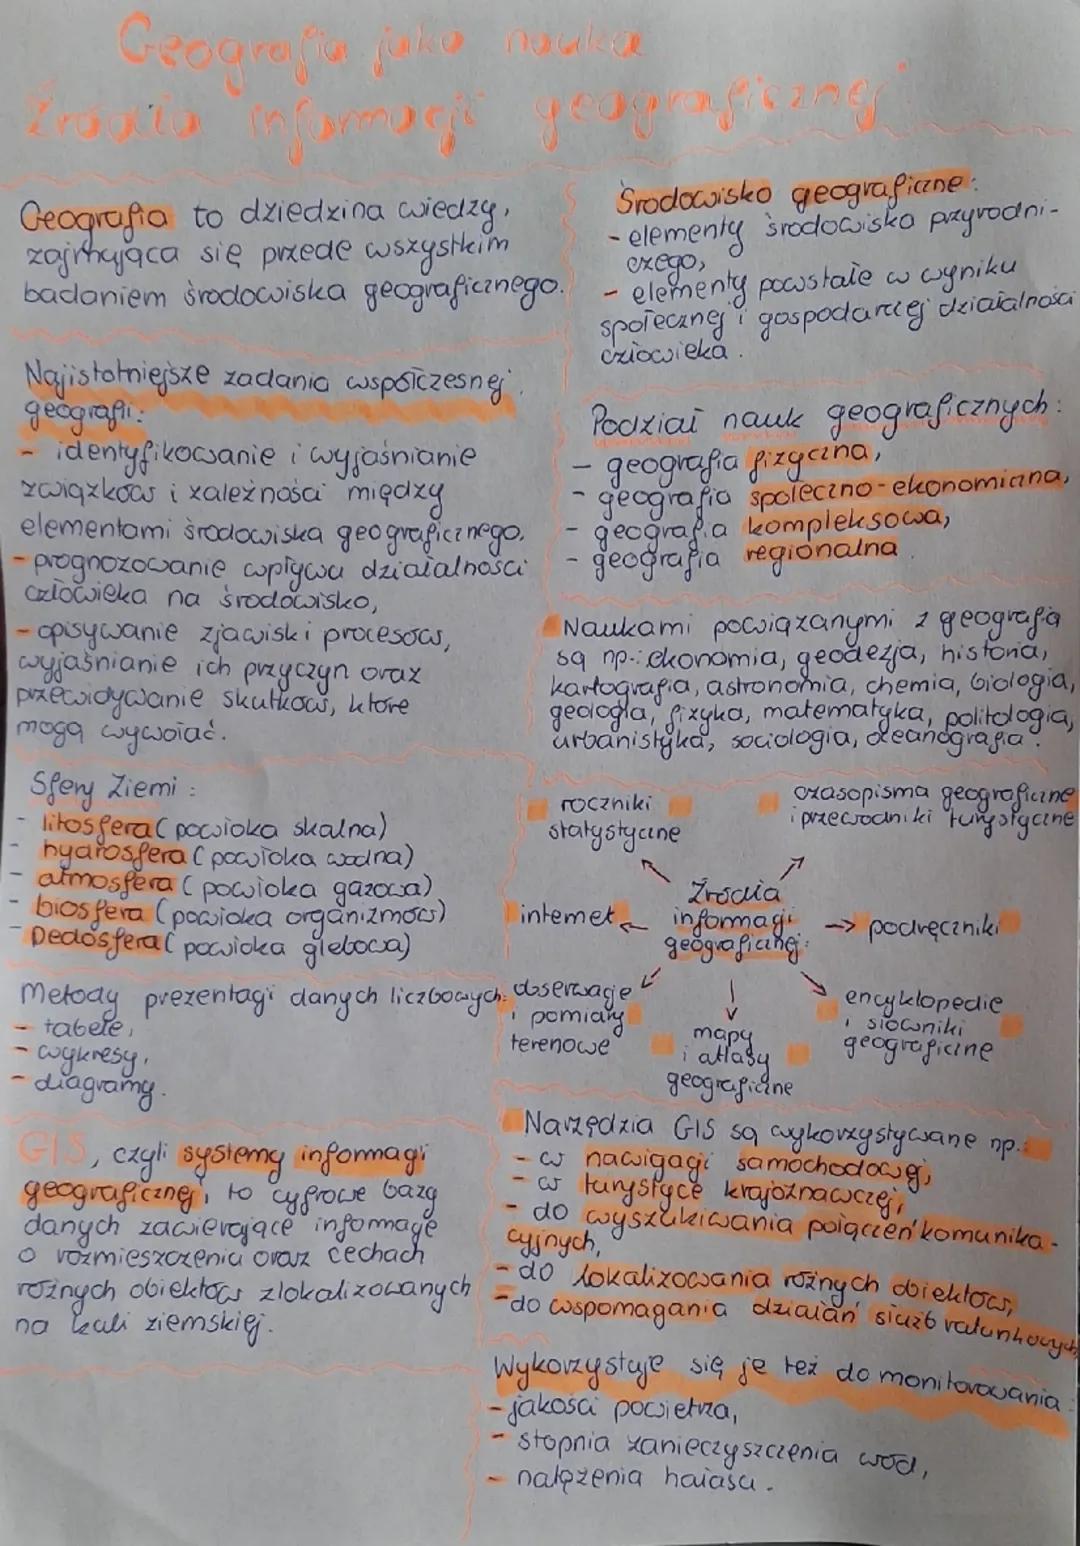 Geografia jako nauka
Źródła informacji geograficznej
Geografia to dziedzina wiedzy,
zajmująca się przede wszystkim
badaniem środowiska geograficznego.
Środowisko geograficzne:
- elementy środowiska przyrodni-
czego,
- elementy powstałe w wyniku
społecznej i gospodarczej działalności
człowieka.
Najistotniejsze zadania współczesnej
geografii:
- identyfikowanie i wyjaśnianie
związków i zależności między
elementami środowiska geograficznego,
- prognozowanie wpływu działalności
człowieka na środowisko,
- opisywanie zjawisk i procesów,
wyjaśnianie ich przyczyn oraz
przewidywanie skutków, które
mogą wywołać.
Podział nauk geograficznych:
- geografia fizyczna,
- geografia społeczno-ekonomiczna,
- geografia kompleksowa,
- geografia regionalna.
Naukami powiązanymi z geografią
są np.: ekonomia, geodezja, historia,
kartografia, astronomia, chemia, biologia,
geologia, fizyka, matematyka, politologia,
urbanistyka, socjologia, oceanografia.
Sfery Ziemi:
- litosfera (powłoka skalna)
- hydrosfera (powłoka wodna)
- atmosfera (powłoka gazowa)
- biosfera (powłoka organizmów)
- Pedosfera (powłoka glebowa)
Metody prezentacji danych liczbowych:
- tabele,
- wykresy,
- diagramy.
Źródła
informacji
geograficznej:
roczniki
statystyczne
czasopisma geograficzne
i przewodniki turystyczne
internet
podręczniki
obserwacje
i pomiary
terenowe
mapy
i atlasy
geograficzne
encyklopedie
i słowniki
geograficzne
GIS, czyli systemy informacji
geograficznej, to cyfrowe bazy
danych zawierające informacje
o rozmieszczeniu oraz cechach
różnych obiektów zlokalizowanych
na kuli ziemskiej.
Narzędzia GIS są wykorzystywane np.:
- w nawigacji samochodowej,
- w turystyce krajoznawczej,
- do wyszukiwania połączeń komunika-
cyjnych,
- do lokalizowania różnych obiektów,
- do wspomagania działań służb ratunkowych
Wykorzystuje się je też do monitorowania:
- jakości powietrza,
- stopnia zanieczyszczenia wód,
- natężenia hałasu.